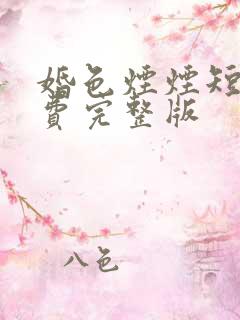 婚色煙煙短
費完整版
八色